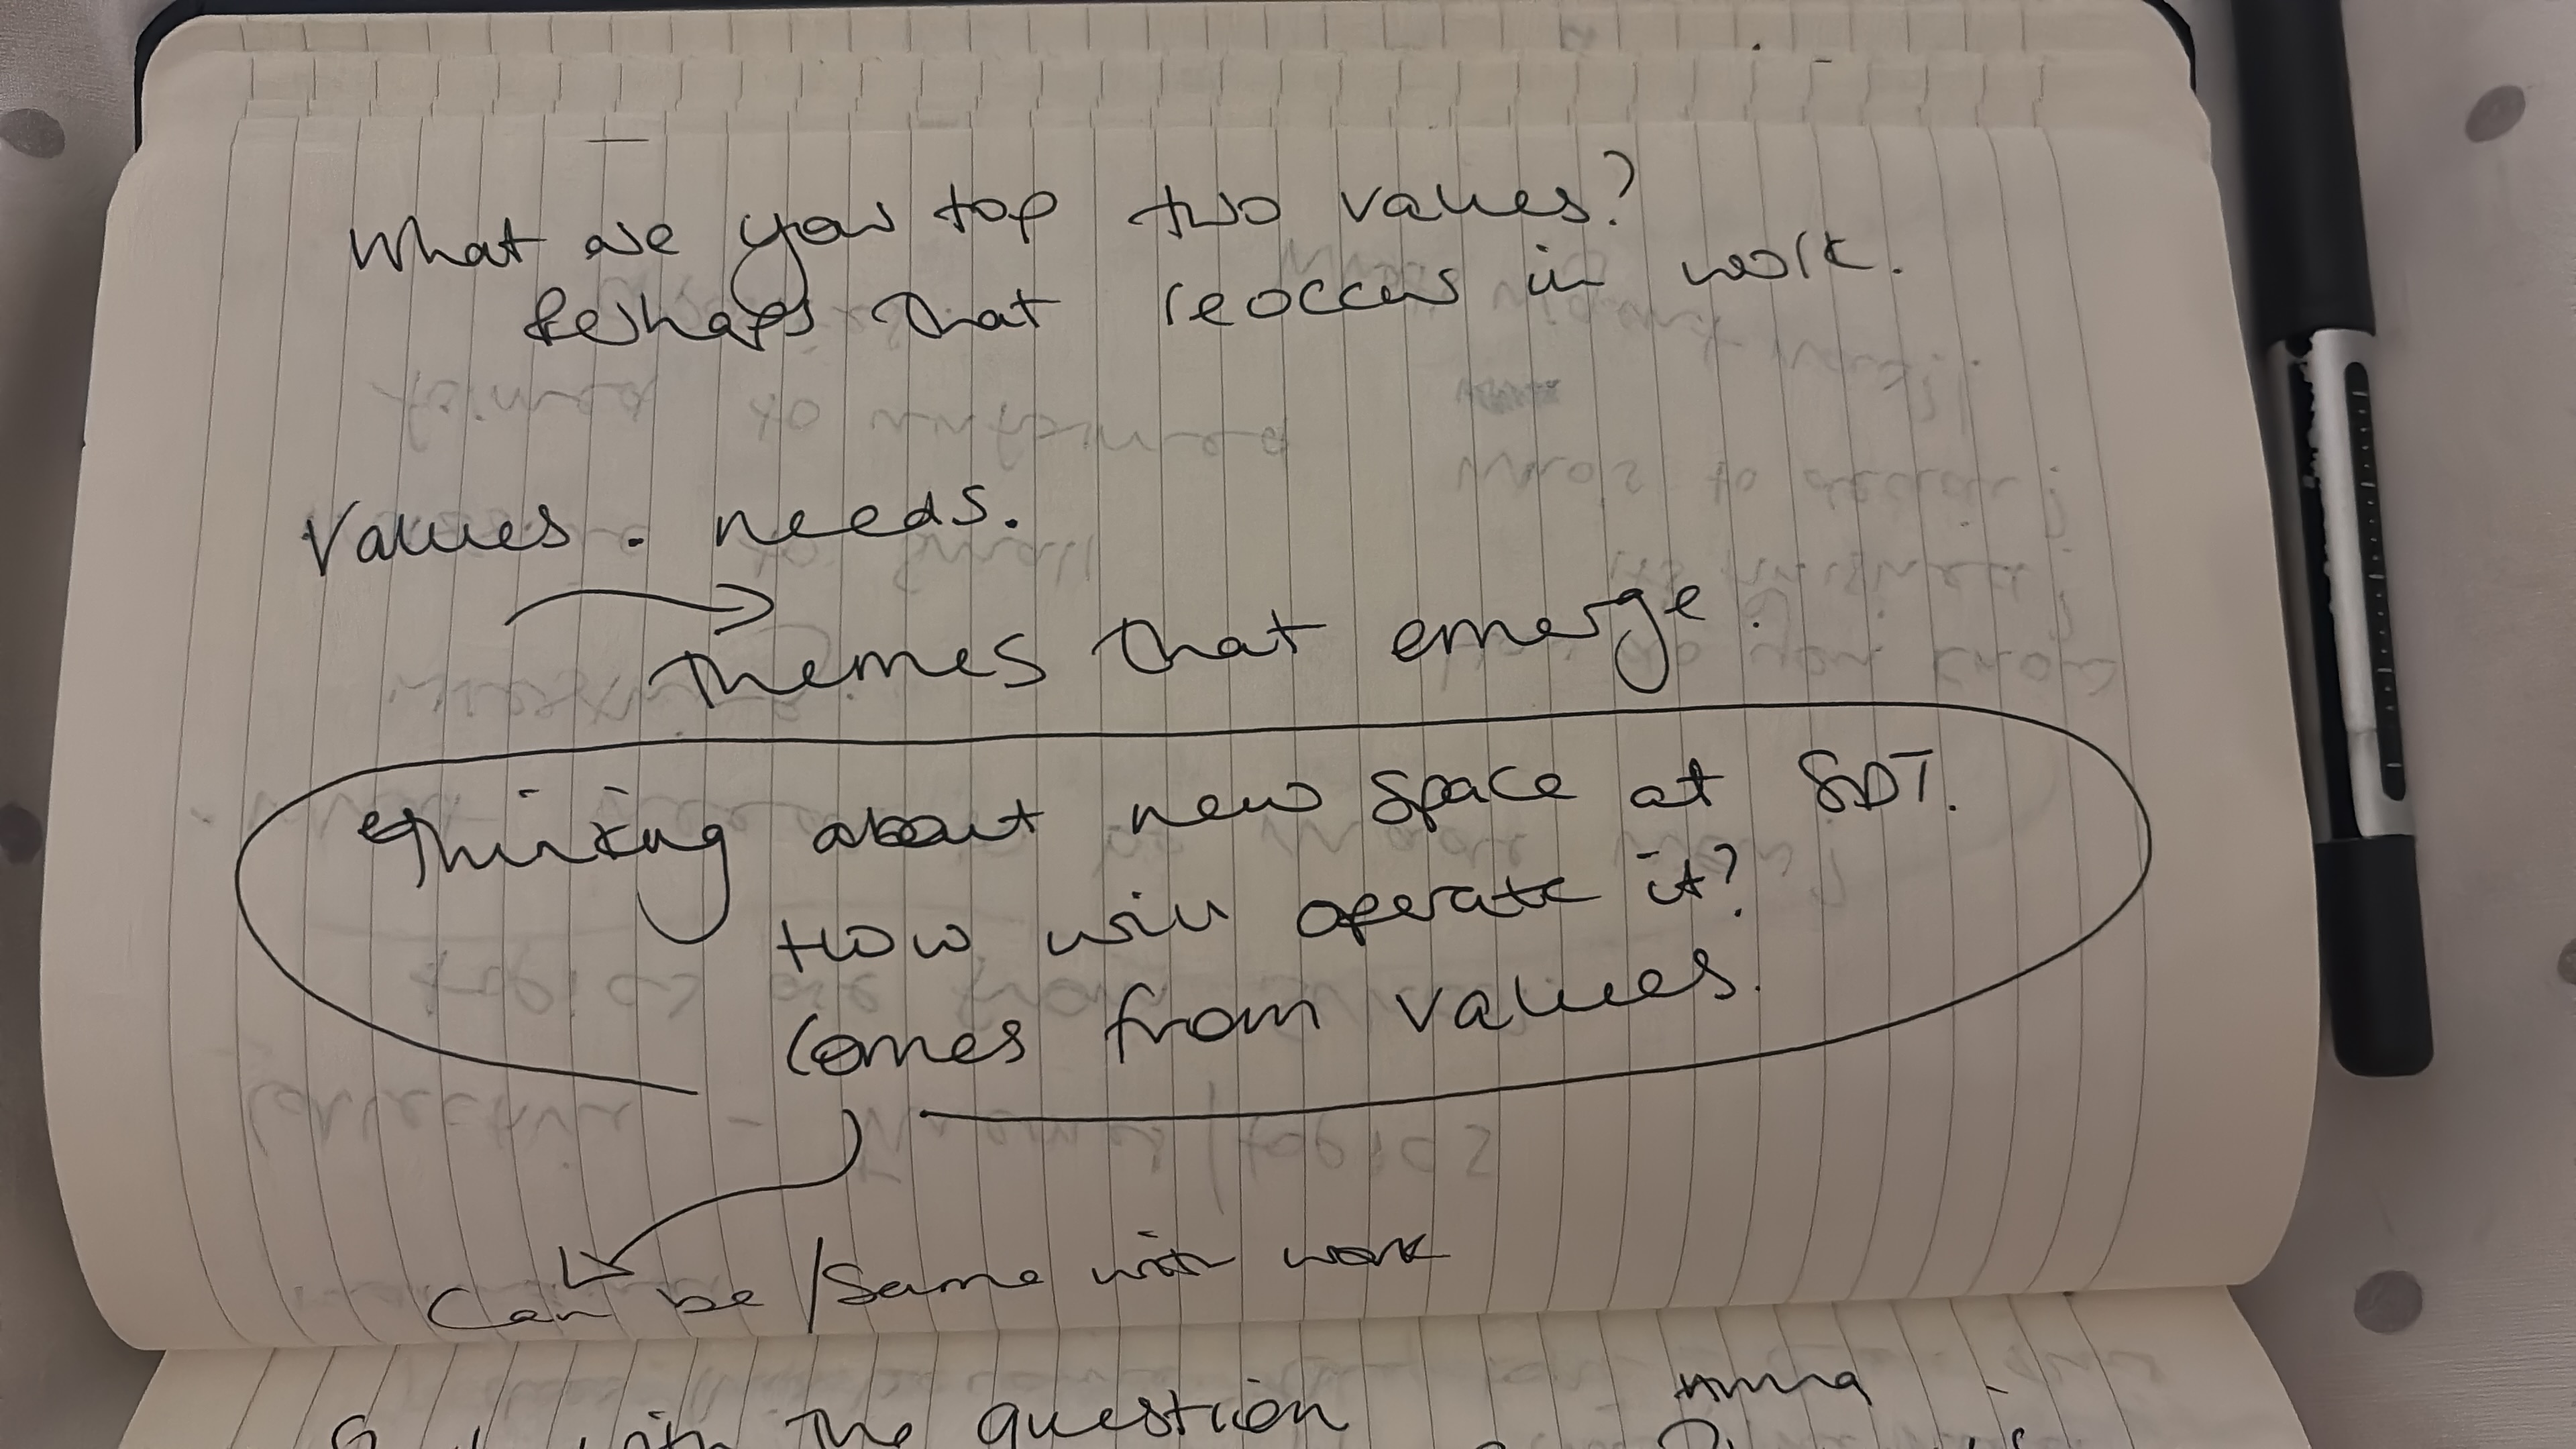 What are your top two values?
Perhaps that reoccurs in work.
Values. needs.
Themes that emerge.
Thinking about new space at SDT.
How will operate it?
Comes from values.
Can be / Same with work
with the question